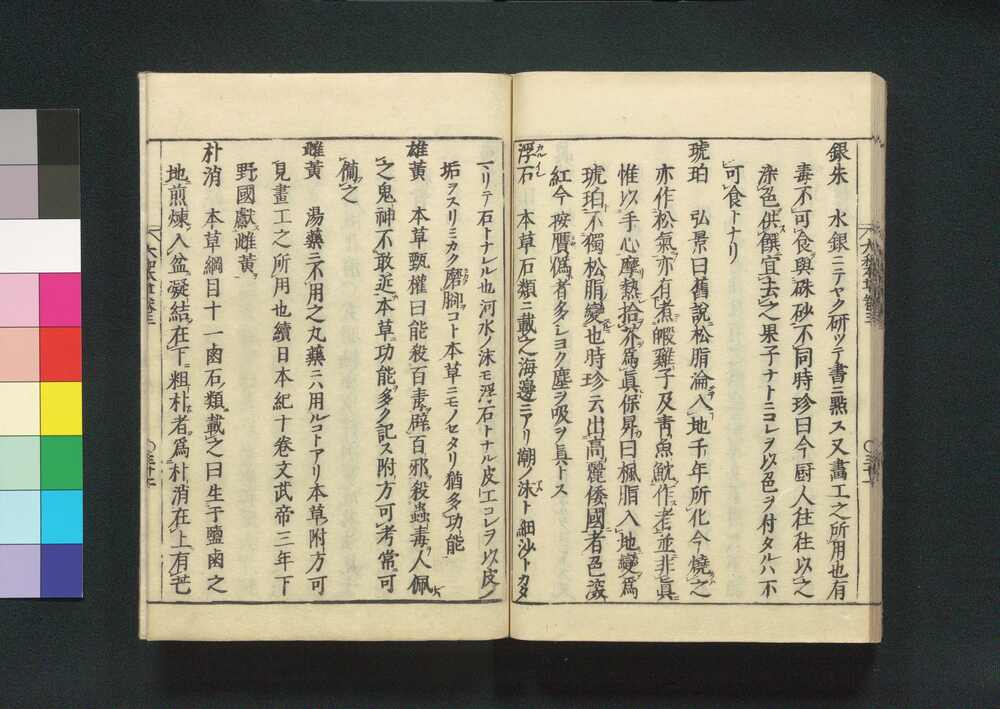 銀朱 水銀ニテヤク研ッテ書ニ點ス又畵工之所用也有
毒不可食與硃砂不同時珍曰今厨人往往以之
染色供饌宜去之果子ナトニコレヲ以色ヲ付タルハ不
可食トナリ
琥珀 弘景曰舊說松脂淪入地千年所化今燒之
亦作松氣亦有煮毈雞子及青魚魫作者並非眞
惟以手心摩熱拾芥爲眞保昇曰楓脂入地變爲
琥珀不獨松脂變也時珍云出高麗倭國者色深
紅今按贋僞者多シヨク塵ヲ吸ヲ眞トス
浮石 カルイシ 本草石類ニ載之海邊ニアリ潮ノ沫ト細沙トカタ
大和本草卷三
マリテ石トナレル也河水ノ沫モ浮石トナル皮工コレヲ以皮ノ
垢ヲスリミカク磨脚コト本草ニモノセタリ猶多功能
雄黃 本草甄權曰能殺百毒辟百邪殺蟲毒人佩
之鬼神不敢近本草功能多ク記ス附方可考常可
備之
雌黃 湯藥ニ不用之丸藥ニハ用ルコトアリ本草附方可
見畫工之所用也續日本紀十卷文武帝三年下
野國獻雌黃
朴消 本草綱目十一鹵石類載之曰生于鹽鹵之
地煎煉入盆凝結在下粗朴者爲朴消在上有芒
大和本草卷三